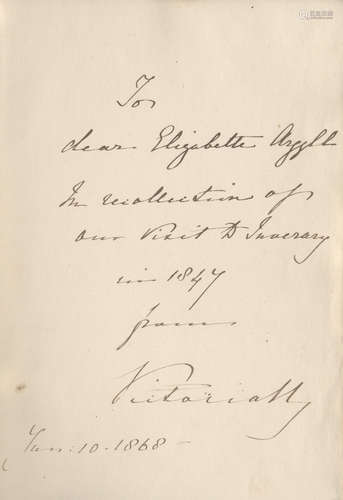 To
dear Elizabeth Argyll
In recollection of
our Visit to Inverary
in 1847
from
Victoria R
Jan: 10. 1868 -